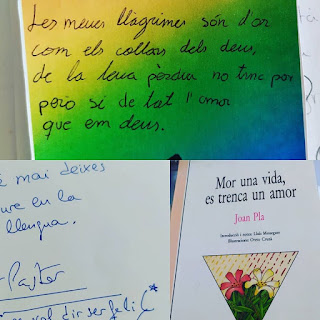 Les meues llàgrimes són d'or
com els collars dels deus,
de la teua pèrdua no tinc por
però sí de tot l'amor
que em deus.
mai deixes
en la
llengua.
Pastor
vol dir ser feliç*
Mor una vida,
es trenca un amor
Joan Pla
Introducció i notes: Lluís Meseguer
Il·lustracions: Ortín Cerdà